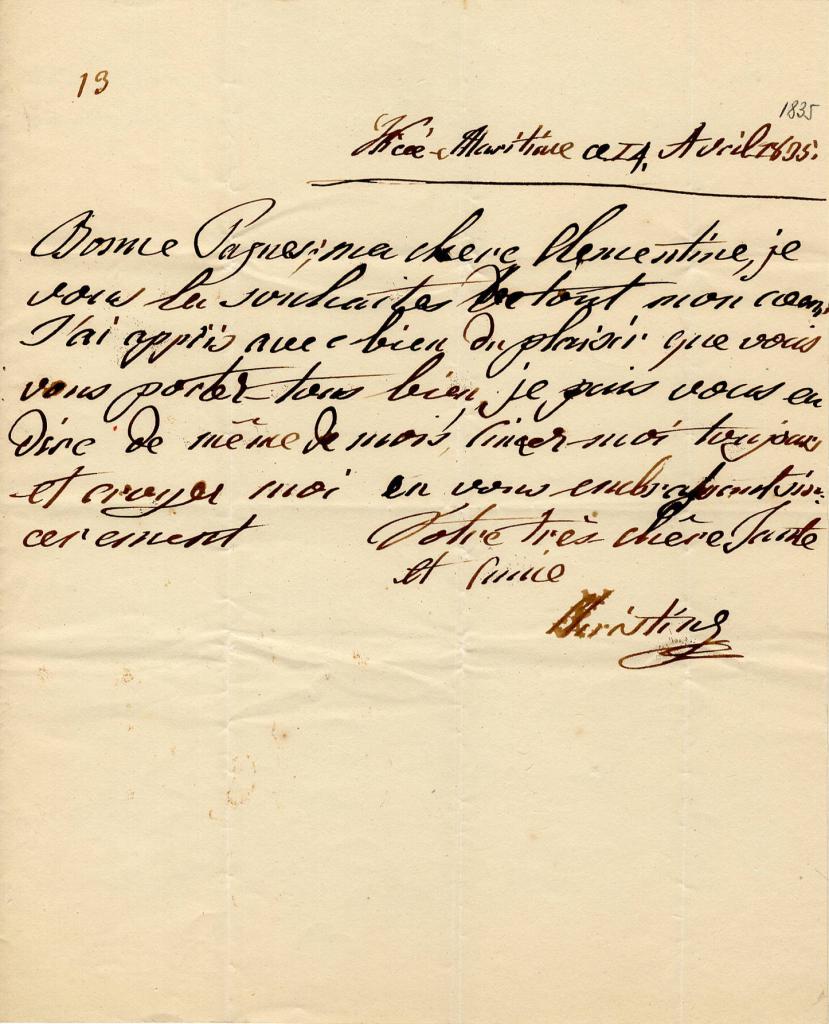 13
1835
Nice-Maritime ce 14. Avril 1835.
Bonne Paques, ma chere Clementine, je
vous la souhaites de tout mon coeur,
J'ai appris avec bien du plaisir que vous
vous portez tous bien, je puis vous en
dire de même de mois, aimer moi toujours
et croyer moi en vous embrassant sin:
cerement Votre très chêre Tante
et Amie
Christine